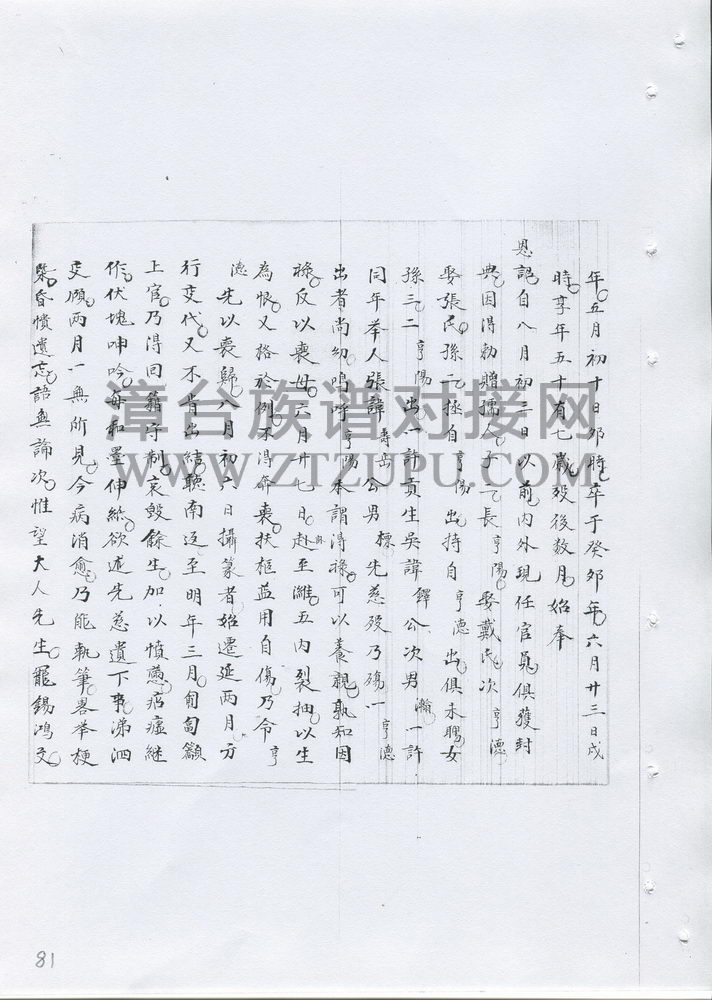 年五月初十日夘時卒于癸夘年六月廿三日戌
時享年五十有七歲歿後数月始奉
恩詔自八月初二日以前内外現任官員俱獲封
典因得勅贈孺人子二長亨陽娶戴氏次亨德
娶張氏孫二拯自亨陽出持自亨德出俱未聘女
孫三二亨陽出一許貢生吳諱鐸公次男瀚一許
同年举人張諱壽岳公男標先慈歿乃殤一亨德
出者尚幼嗚呼亨陽本謂得祿可以養親孰知因
祿反以喪母六月廿七日赴至濰五内裂抽以生
為恨又格於例不得奔喪扶柩益用自傷乃令亨
德先以喪歸八月初六日攝篆者始遷延兩月方
行交代又不肯出結聽南迄至明年三月匍匐籲
上官乃得回籍守制哀毀餘生加以憤懣痞虛継
作伏塊呻吟每和墨伸紙欲述先慈遺下事涕泗
交頤两月一無所見今病消愈乃能執筆畧举梗
槩昏憒遺忘語無論次惟望大人先生寵錫鴻文
漳台族谱对接网
WWW.ZTZUPU.COM
81